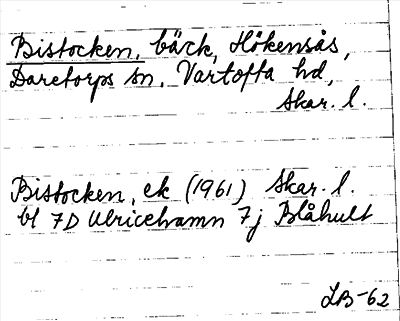 Bistocken, bäck, Hökensås,
Daretorps sn, Vartofta hd,
Skar. l.
Bistocken, ek (1961) Skar. l.
bl 7D Ulricehamn 7j Blåhult
LB-62